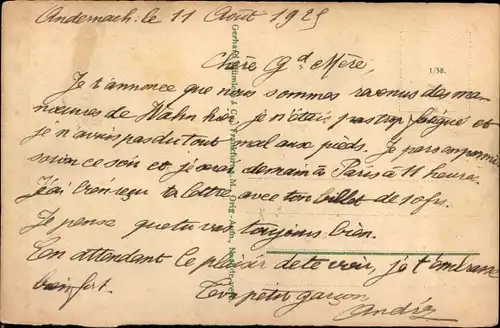 Andernach. le 11 Août 1925
Chère Gd Mère,
Je t'annonce que nous sommes revenus des ma-
nœuvres de Hahn hier, je n'étais pas trop fatigué et
je n'avais pas du tout mal aux pieds. Je pars en permis-
sion ce soir et je serai demain à Paris à 11 heures
J'ai bien reçu ta lettre avec ton billet de 10 frs.
Je pense que tu vas toujours bien.
En attendant le plaisir de te voir, je t'embrasse
bien fort.
Ton petit garçon
André
1/58.
Gerhard & Co., Frankfurt a. M. Orig.-Aufn.,